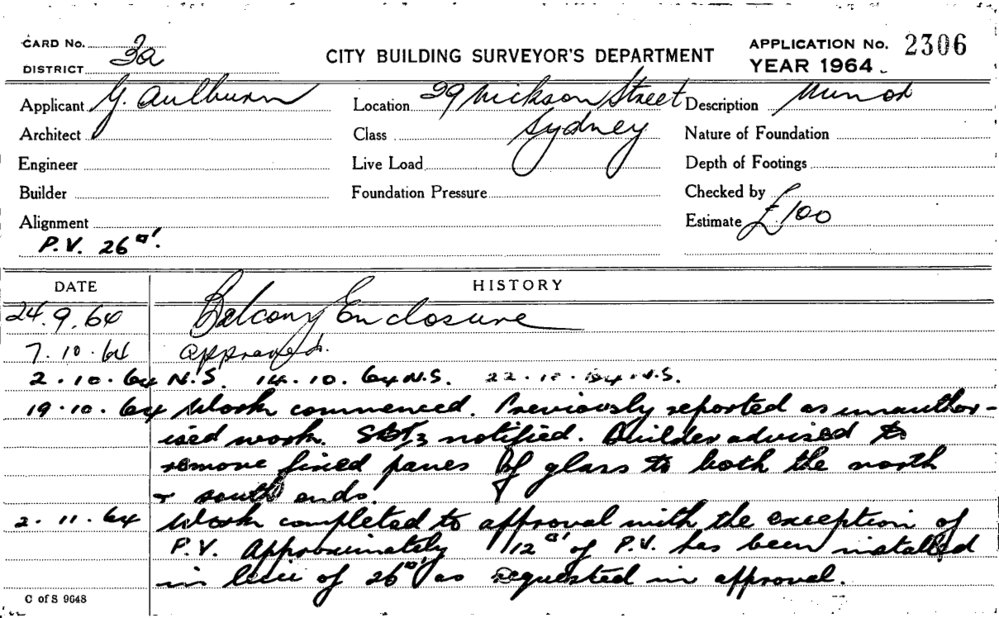 CARD No. CITY BUILDING SURVEYOR'S DEPARTMENT APPLICATION No. 2306
DISTRICT 2a YEAR 1964
Applicant G. Aulburn Location 29 Hickson Street Description Minor
Architect Class Sydney Nature of Foundation
Engineer Live Load Depth of Footings
Builder Foundation Pressure Checked by
Alignment Estimate £100
P.V. 26□'.
DATE HISTORY
24.9.64 Balcony Enclosure
7.10.64 approved.
2.10.64 N.S. 14.10.64 N.S. 22.10.64 N.S.
19.10.64 Work commenced. Previously reported as unauthor-
ised work. notified. Builder advised to
remove fixed panes of glass to both the north
& south ends.
2.11.64 Work completed to approval with the exception of
P.V. Approximately 12□' of P.V. has been installed
in lieu of 26□' as requested in approval.
C of S 9648